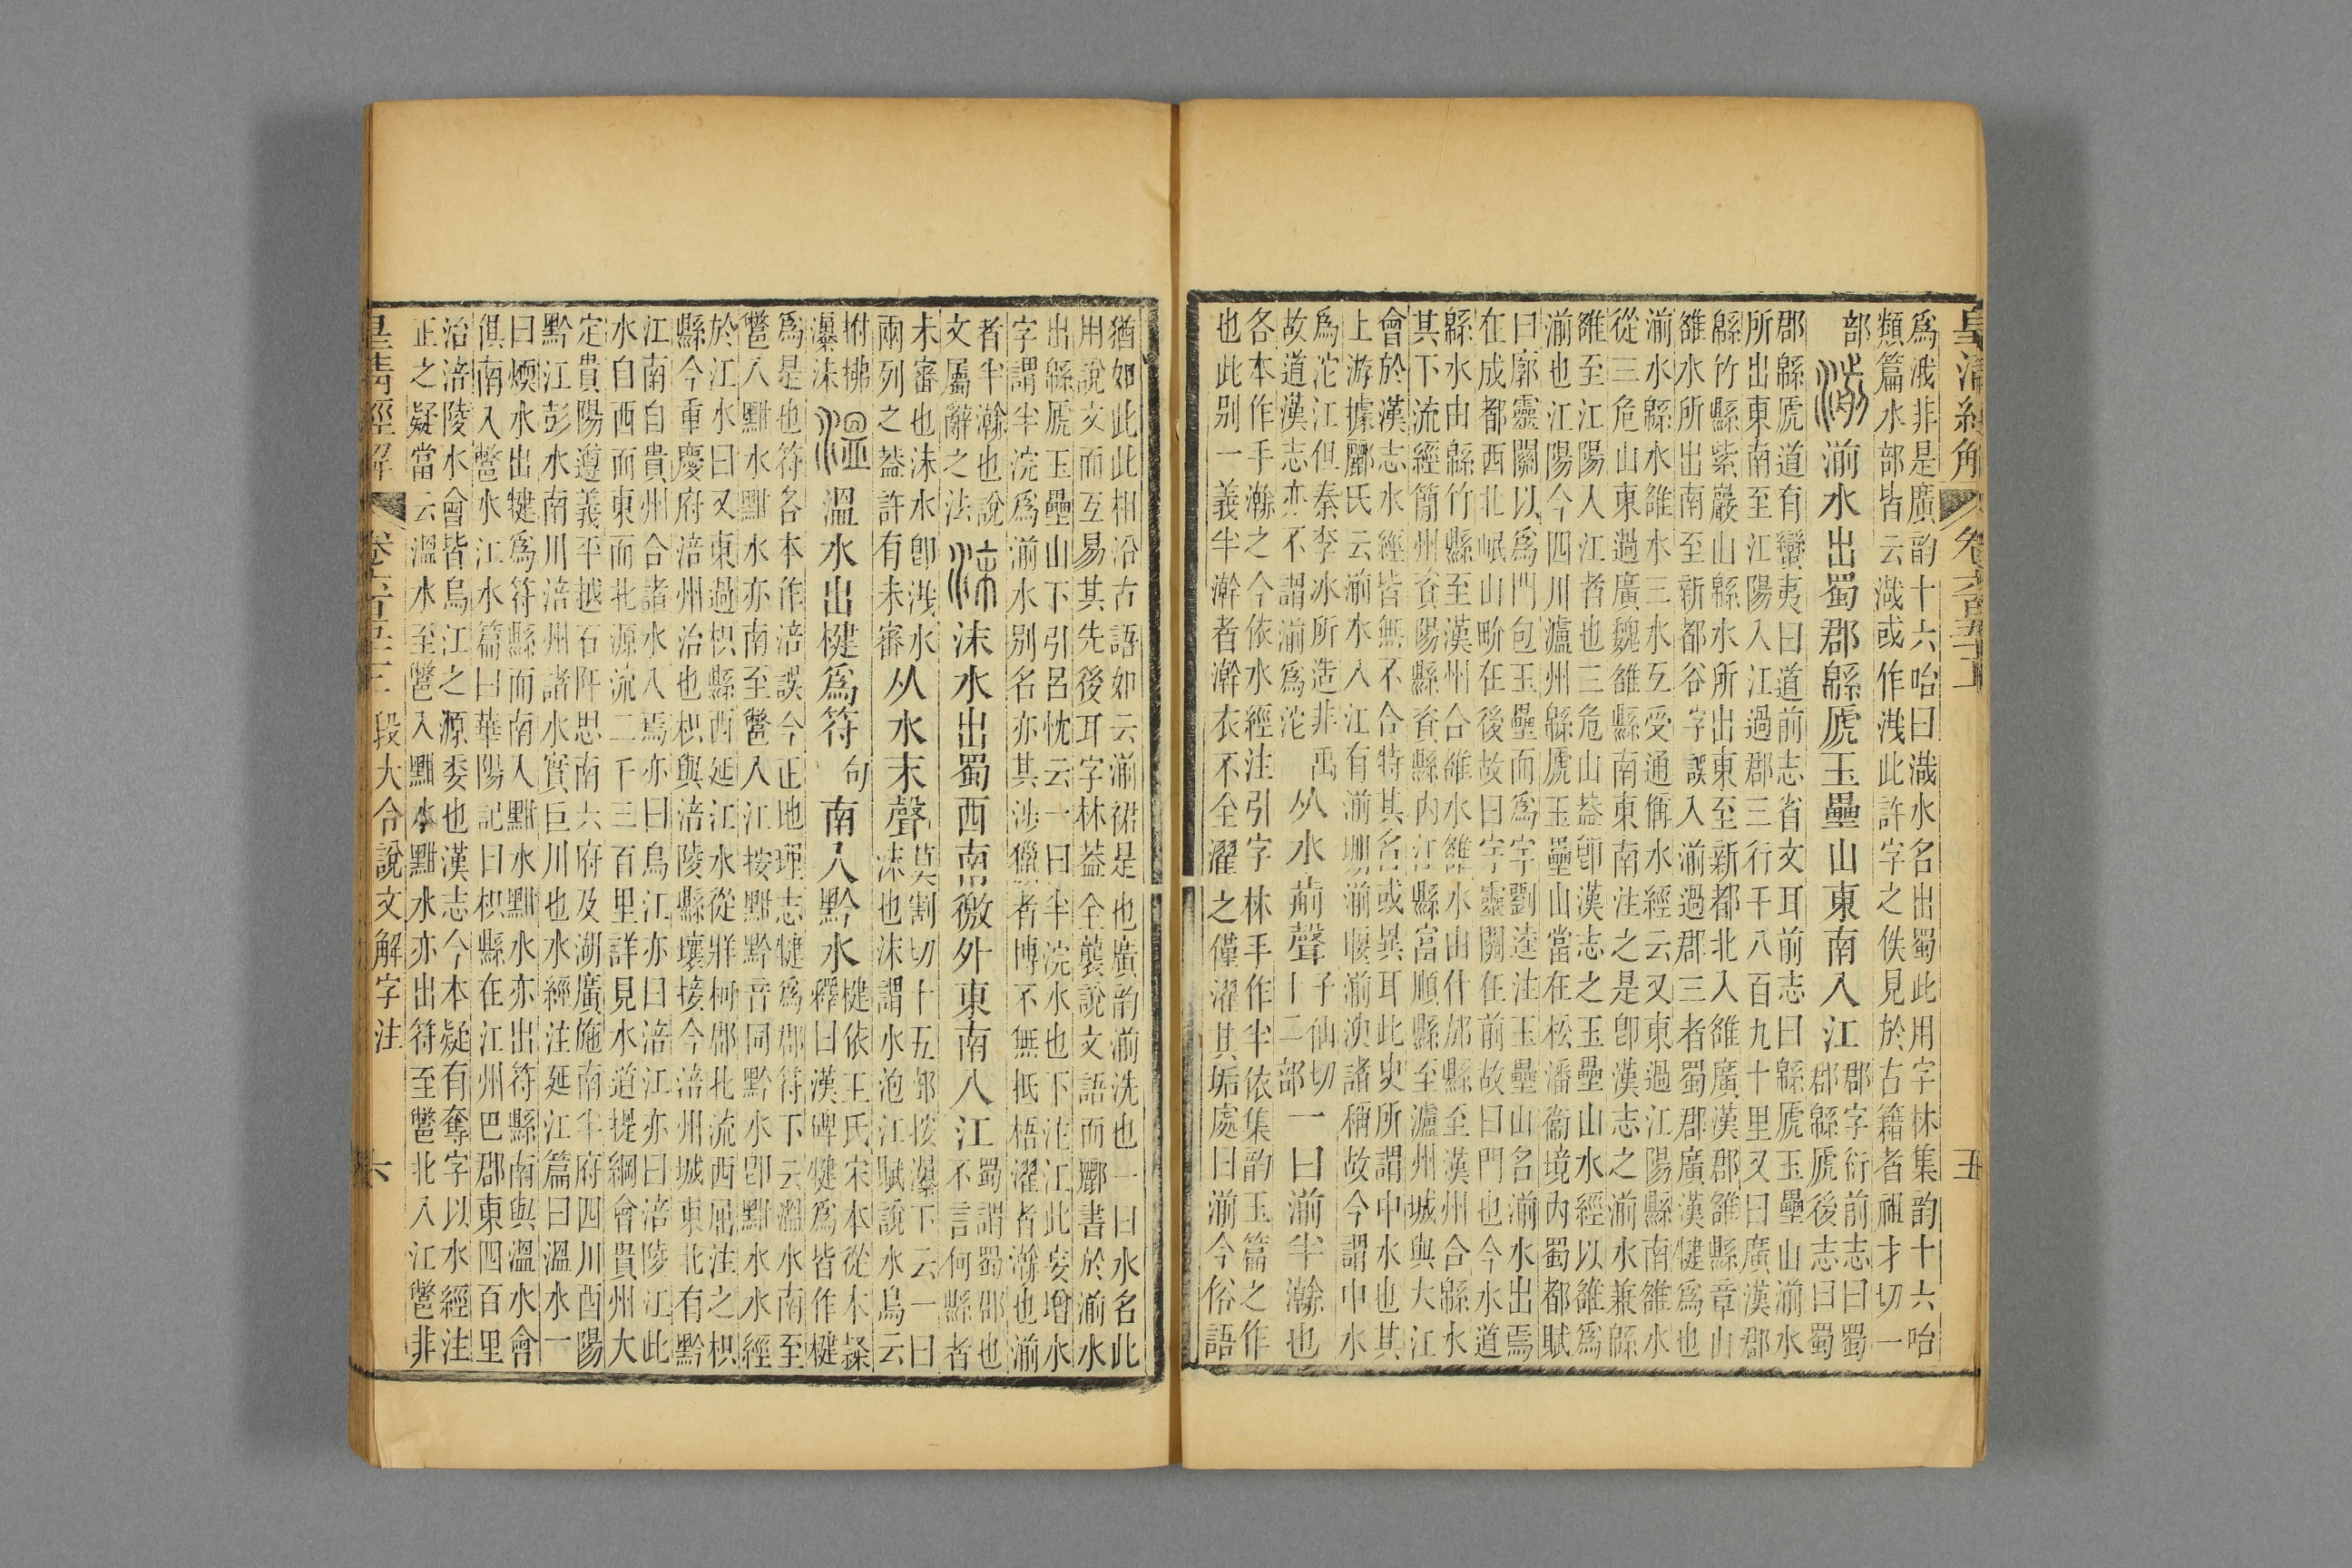 皇清經解
五
爲涐非是廣韵十六咍曰渽水名出蜀此用字林集韵十六咍
類篇水部皆云渽或作浅此許字之佚見於古籍者祖才切一
部
湔水出蜀郡緜虒玉壘山東南入江
郡字衍前志曰蜀
郡緜虒後志曰蜀
郡緜虒道有蠻夷曰道前志省文耳前志曰緜虒玉壘山湔水
所出東南至江陽入江過郡三行千八百九十里又曰廣漢郡
緜竹縣紫巖山緜水所出東至新都北入雒廣漢郡雒縣章山
雒水所出南至新都谷字誤入湔過郡三者蜀郡廣漢犍爲也
湔水緜水雒水三水互受通稱水經云又東過江陽縣南雒水
從三危山東過廣魏雒縣南東南注之是卽漢志之湔水兼緜
雒至江陽入江者也三危山葢卽漢志之玉壘山水經以雒爲
湔也江陽今四川瀘州緜虒玉壘山當在松潘衞境內蜀都賦
曰廓靈關以爲門包玉壘而爲宇劉逵注玉壘山名湔水出焉
在成都西北岷山畍在後故曰宇靈關在前故曰門也今水道
緜水由緜竹縣至漢州合雒水雒水由什邡縣至漢州合緜水
其下流經簡州資陽縣資縣內江縣富順縣至瀘州城與大江
會於漢志水經皆無不合特其名或異耳此諸史所謂中水也其
上游據酈氏云湔水入江有湔堋湔堰湔洩諸稱故今謂中水
爲沱江但秦李冰所造非禹
故道漢志亦不謂湔爲沱
从水歬聲
子仙切
十二部
一曰湔半瀚也
各本作手瀚之今依水經注引字林手作半依集韵玉篇之作
也此别一義半澣者澣衣不全濯之僅濯其垢處曰湔今俗語
猶如此此相沿古語如云湔裙是也廣韵湔洗也一曰水名此
用說文而互易其先後耳字林葢全襲說文語而酈書於湔水
出緜虒玉壘山下引呂忱云一曰半浣水也下注江此妄增水
字謂半浣爲湔水别名亦其涉獵者博不無抵梧濯者瀚也湔
者半瀚也說
文屬辭之法
沫水出蜀西南徼外東南入江
蜀謂蜀郡也
不言何縣者
未審也沫水卽浅水
兩列之葢許有未審
从水末聲
莫割切十五部按瀑下云一曰
沫也沫謂水泡江賦說水鳥云
拊拂
瀑沫
溫水出楗爲符句南入黔水
楗依王氏宋本從木𥡴
釋曰漢碑犍爲皆作楗
爲是也符各本作涪誤今正地理志犍爲郡符下云溫水南至
鄨入黚水黚水亦南至鄨入江按黚黔音同黔水卽黚水水經
於江水曰又東過枳縣西延江水從牂柯郡北流西屈注之枳
縣今重慶府涪州治也枳與涪陵縣壤接今涪州城東北有黔
江南自貴州合諸水入焉亦曰烏江亦曰涪江亦曰涪陵江此
水自西而東而北源流二千三百里詳見水道提綱會貴州大
定貴陽遵義平越石阡思南六府及湖廣施南半府四川酉陽
黔江彭水南川涪州諸水實巨川也水經注延江篇曰溫水一
曰煗水出犍爲符縣而南入黚水黚水亦出符縣南與溫水會
俱南入鄨水江水篇曰華陽記曰枳縣在江州巴郡東四百里
治涪陵水會皆烏江之源委也漢志今本疑有奪字以水經注
正之疑當云溫水至鄨入黚水黚水亦出符至鄨北入江鄨非
皇淸經解
卷六百五十三
段大令說文解字注
六